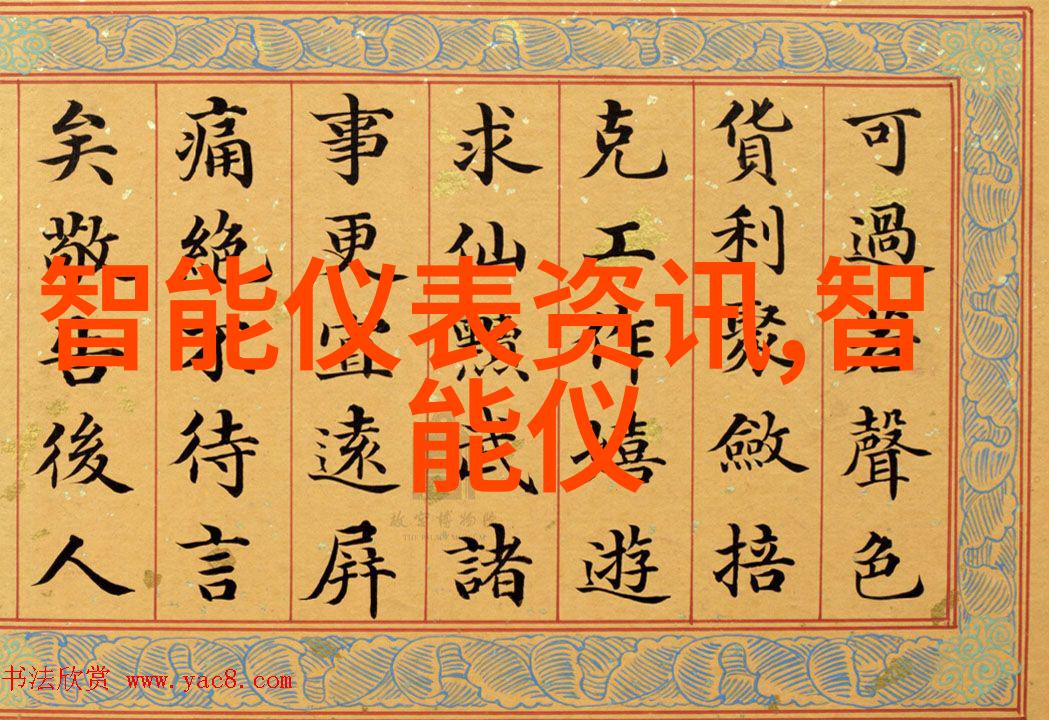 可過若聲色
貨利聚斂掊
克工作嬉遊
求仙黷武諸
事更宜遠屏
痛絕不待言
矣敬後人
智能仪表资讯,智
能仪
故宫博物院
THE PALACE MUSEUM
书法欣赏 www.yac8.com